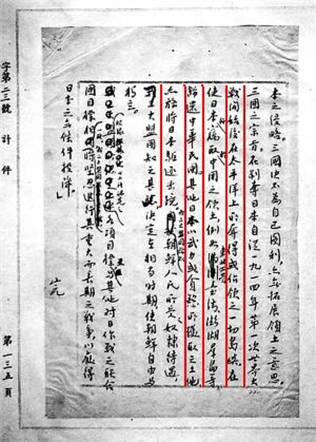 本之侵略。三國決不為自己圖利,亦無拓展領土之意思。
三國之宗旨,在剝奪日本自從一九一四年第一次世界大
戰開始後在太平洋上所奪得或佔領之一切島嶼,在
使日本竊取中國之領土,例如
澎湖群島等
歸還中華民國。其他日本以武力或貪慾所攫取之土地
亦務將日本驅逐出境
朝鮮人民所受奴隸待遇
三大盟國知之甚
決定在相當時期使朝鮮自由與
獨立。
各項目標與其他對日作戰之聯合
國目標
堅忍進行其重大而長期之戰爭,以獲得
日本之
條件投降。」
完
字第二三號 計 件 第一三五頁